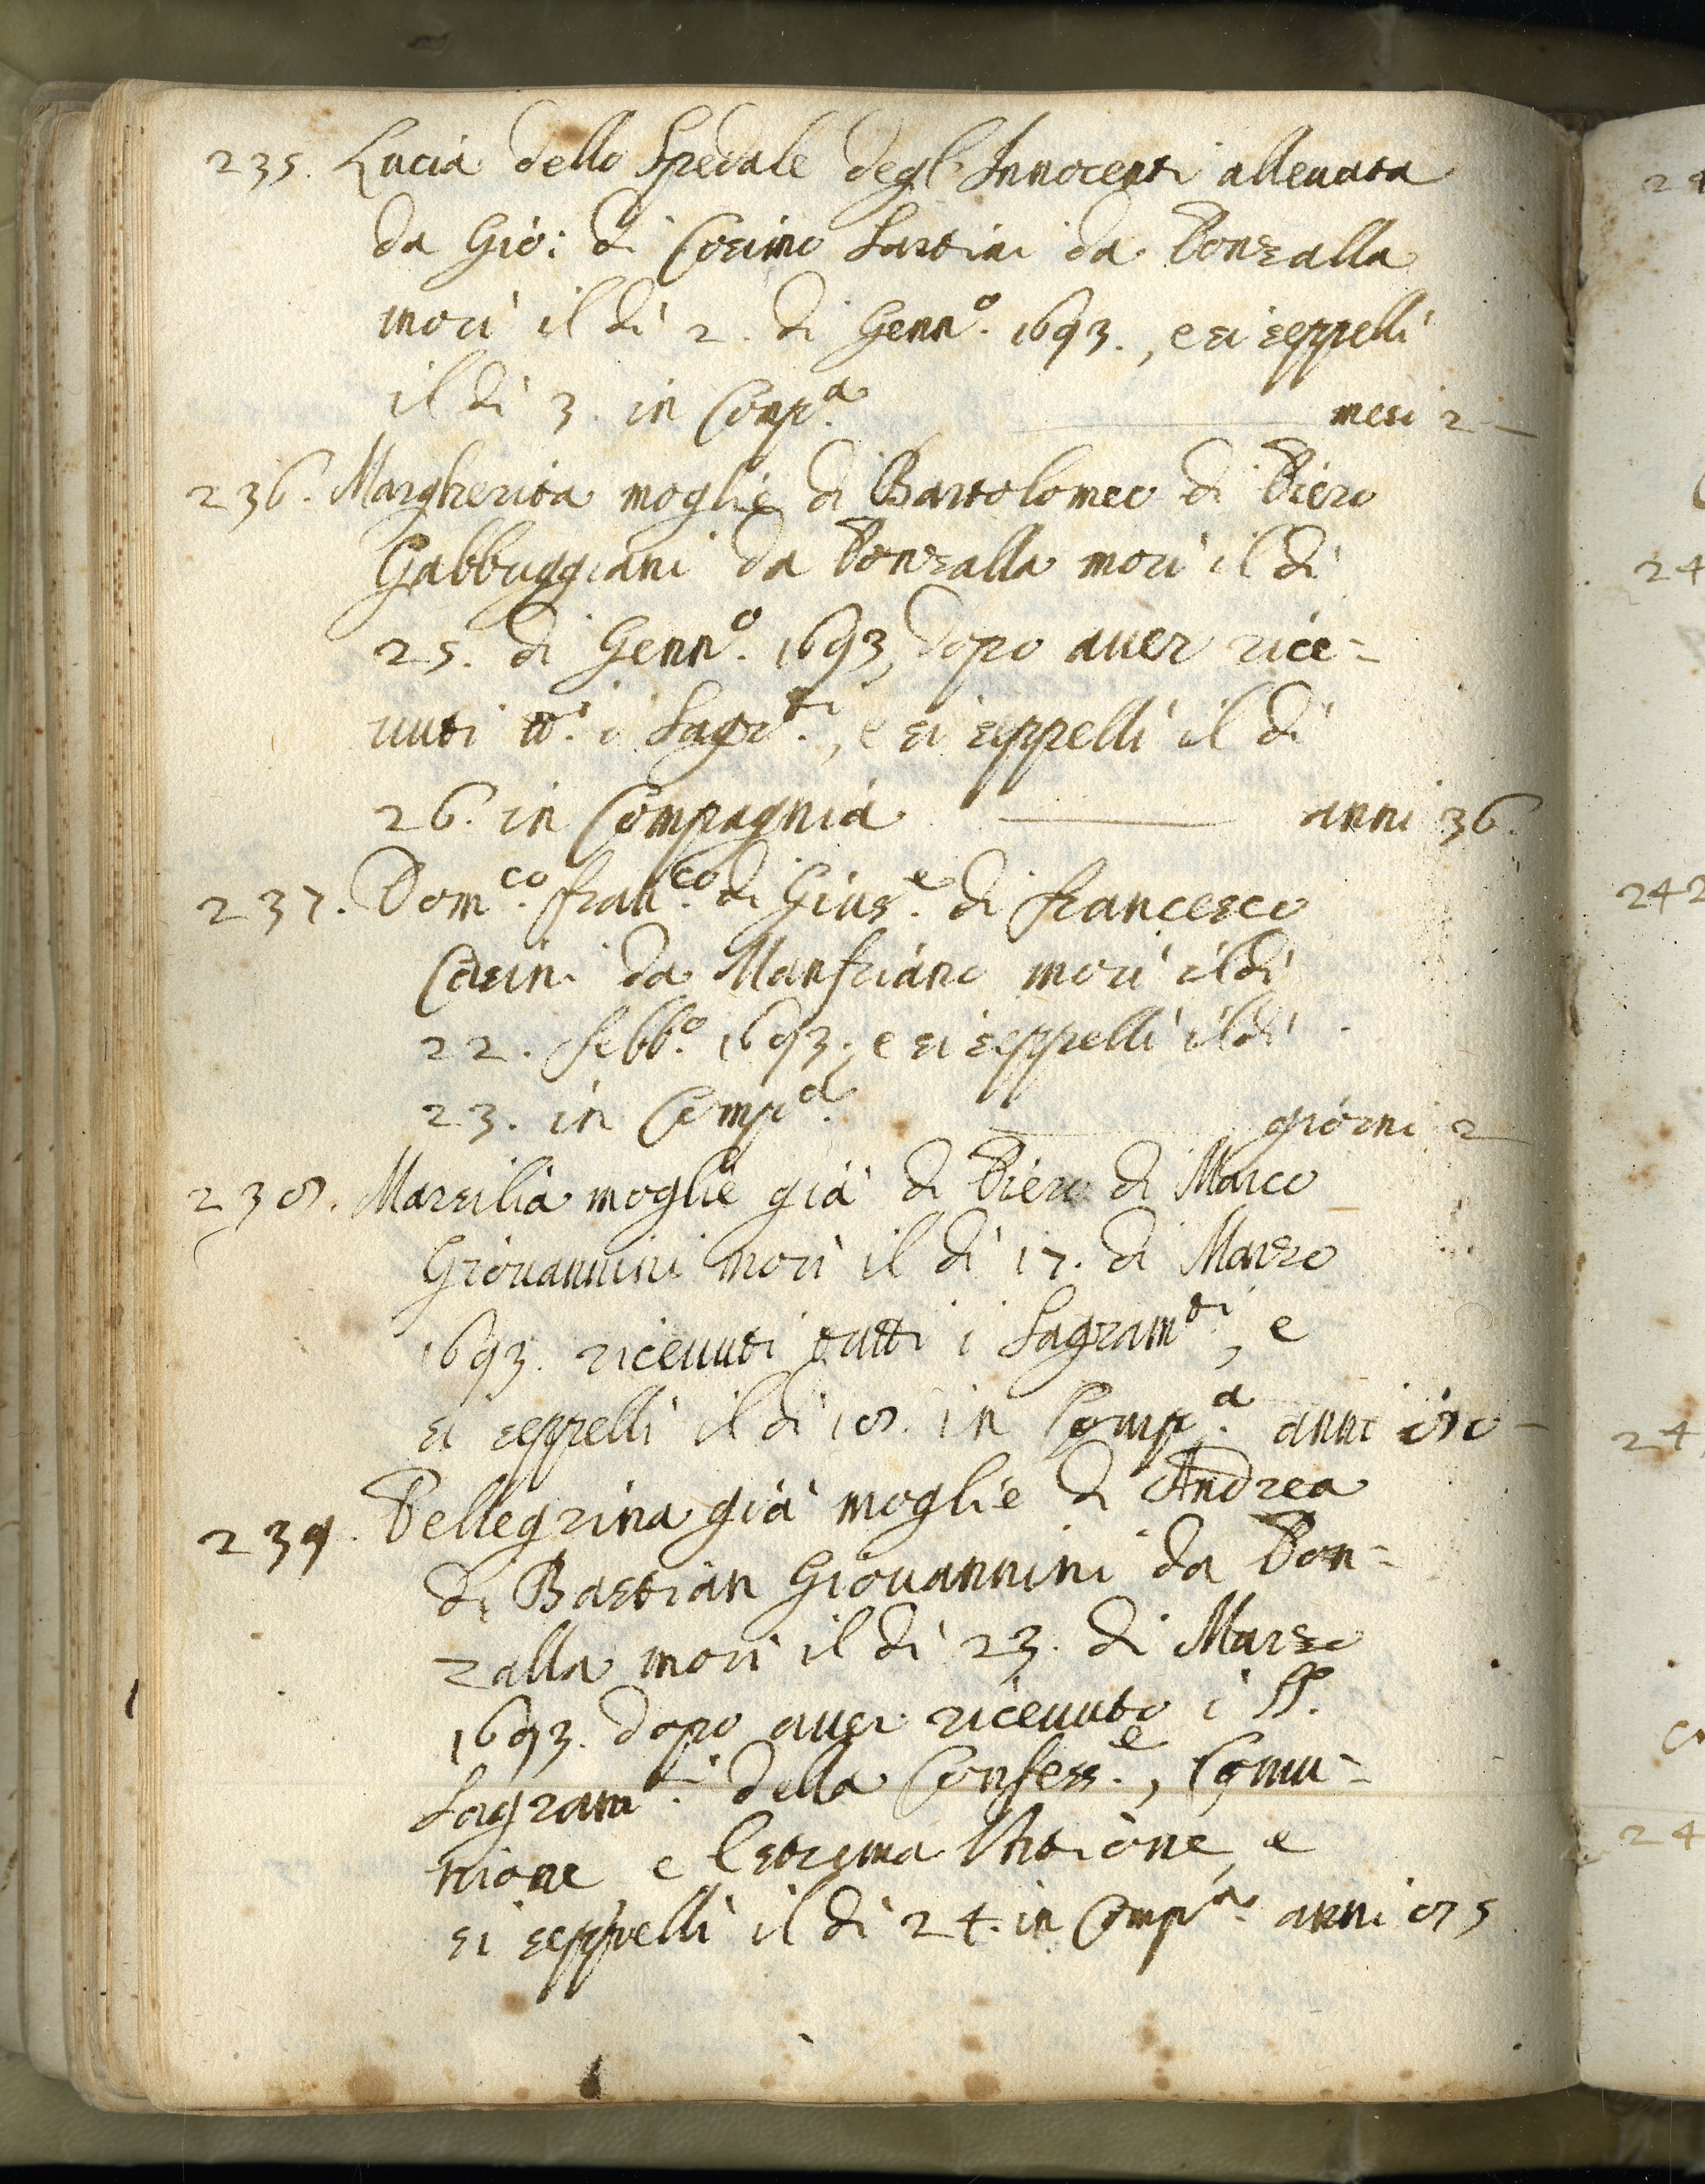 235. Lucia dello Spedale degl'Innocenti alleuata
da Gio: di Cosimo Sartini da Ponzalla
morì il dì 2. di Genn.º 1693., e si seppellì
il dì 3. in Comp.ª mesi 2
236. Margherita moglie di Bartolomeo di Piero
Gabbuggiani da Ponzalla morì il dì
25. di Genn.º 1693, dopo auer rice=
uuti tt.i i Sagr.ti, e si seppellì il dì
26. in Compagnia anni 36.
237. Dom.co Fran.co di Gius.e di Francesco
Casini da Manfriano morì il dì
22. Febb.º 1693., e si seppellì il dì
23. in Comp.ª giorni 2
238. Marsilia moglie già di Piero di Marco
Giouannini morì il dì 17. di Marzo
1693. riceuuti tutti i Sagram.ti, e
si seppellì il dì 18. in Comp.ª anni 80
239. Pellegrina già moglie di Andrea
di Bastian Giouannini da Pon=
zalla morì il dì 23. di Marzo
1693. dopo auer riceuuto i SS.
Sagram.ti della Confess.e, Comu=
nione, e l'estrema Untione, e
si seppellì il dì 24. in Comp.ª anni 85
24
24
242
24
24